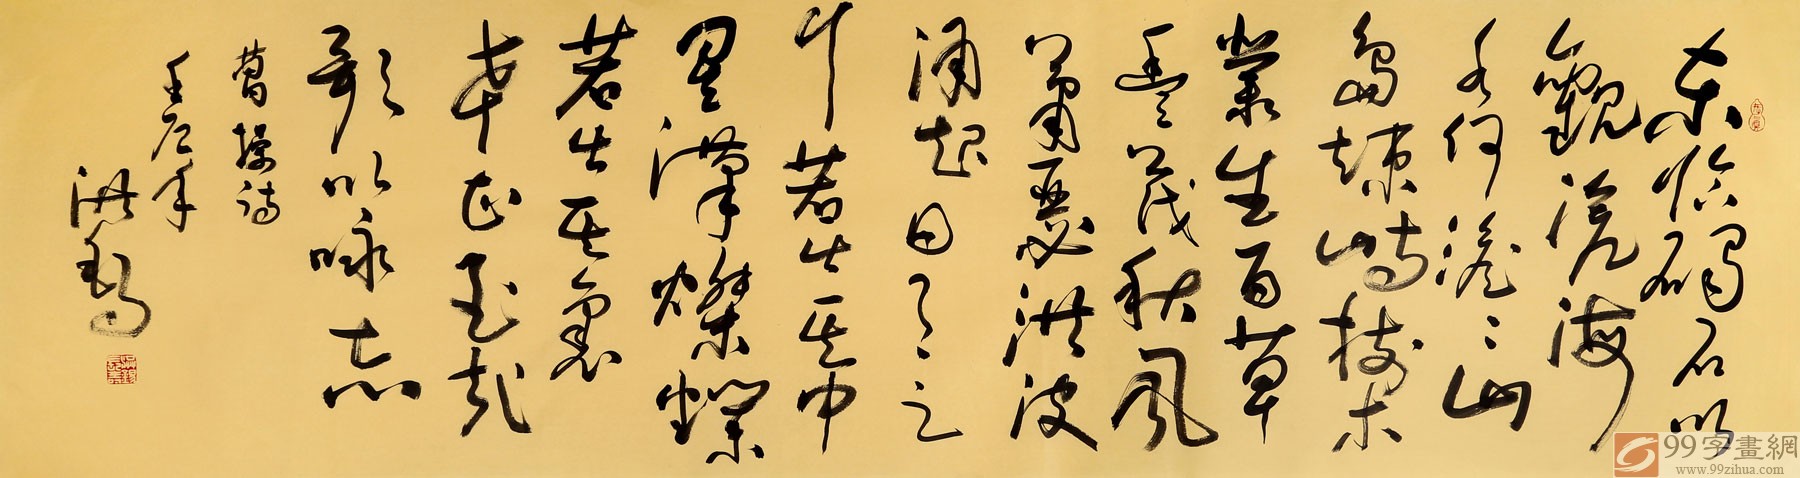 东临碣石以
觀滄海
水何澹々山
島竦峙樹木
叢生百草
豐茂秋風
蕭瑟洪波
涌起日月之
行若出其中
星漢燦爛
若出其裏
幸甚至哉
歌以咏志
曹操詩
壬辰年
洪
99字畫網
www.99zihua.com